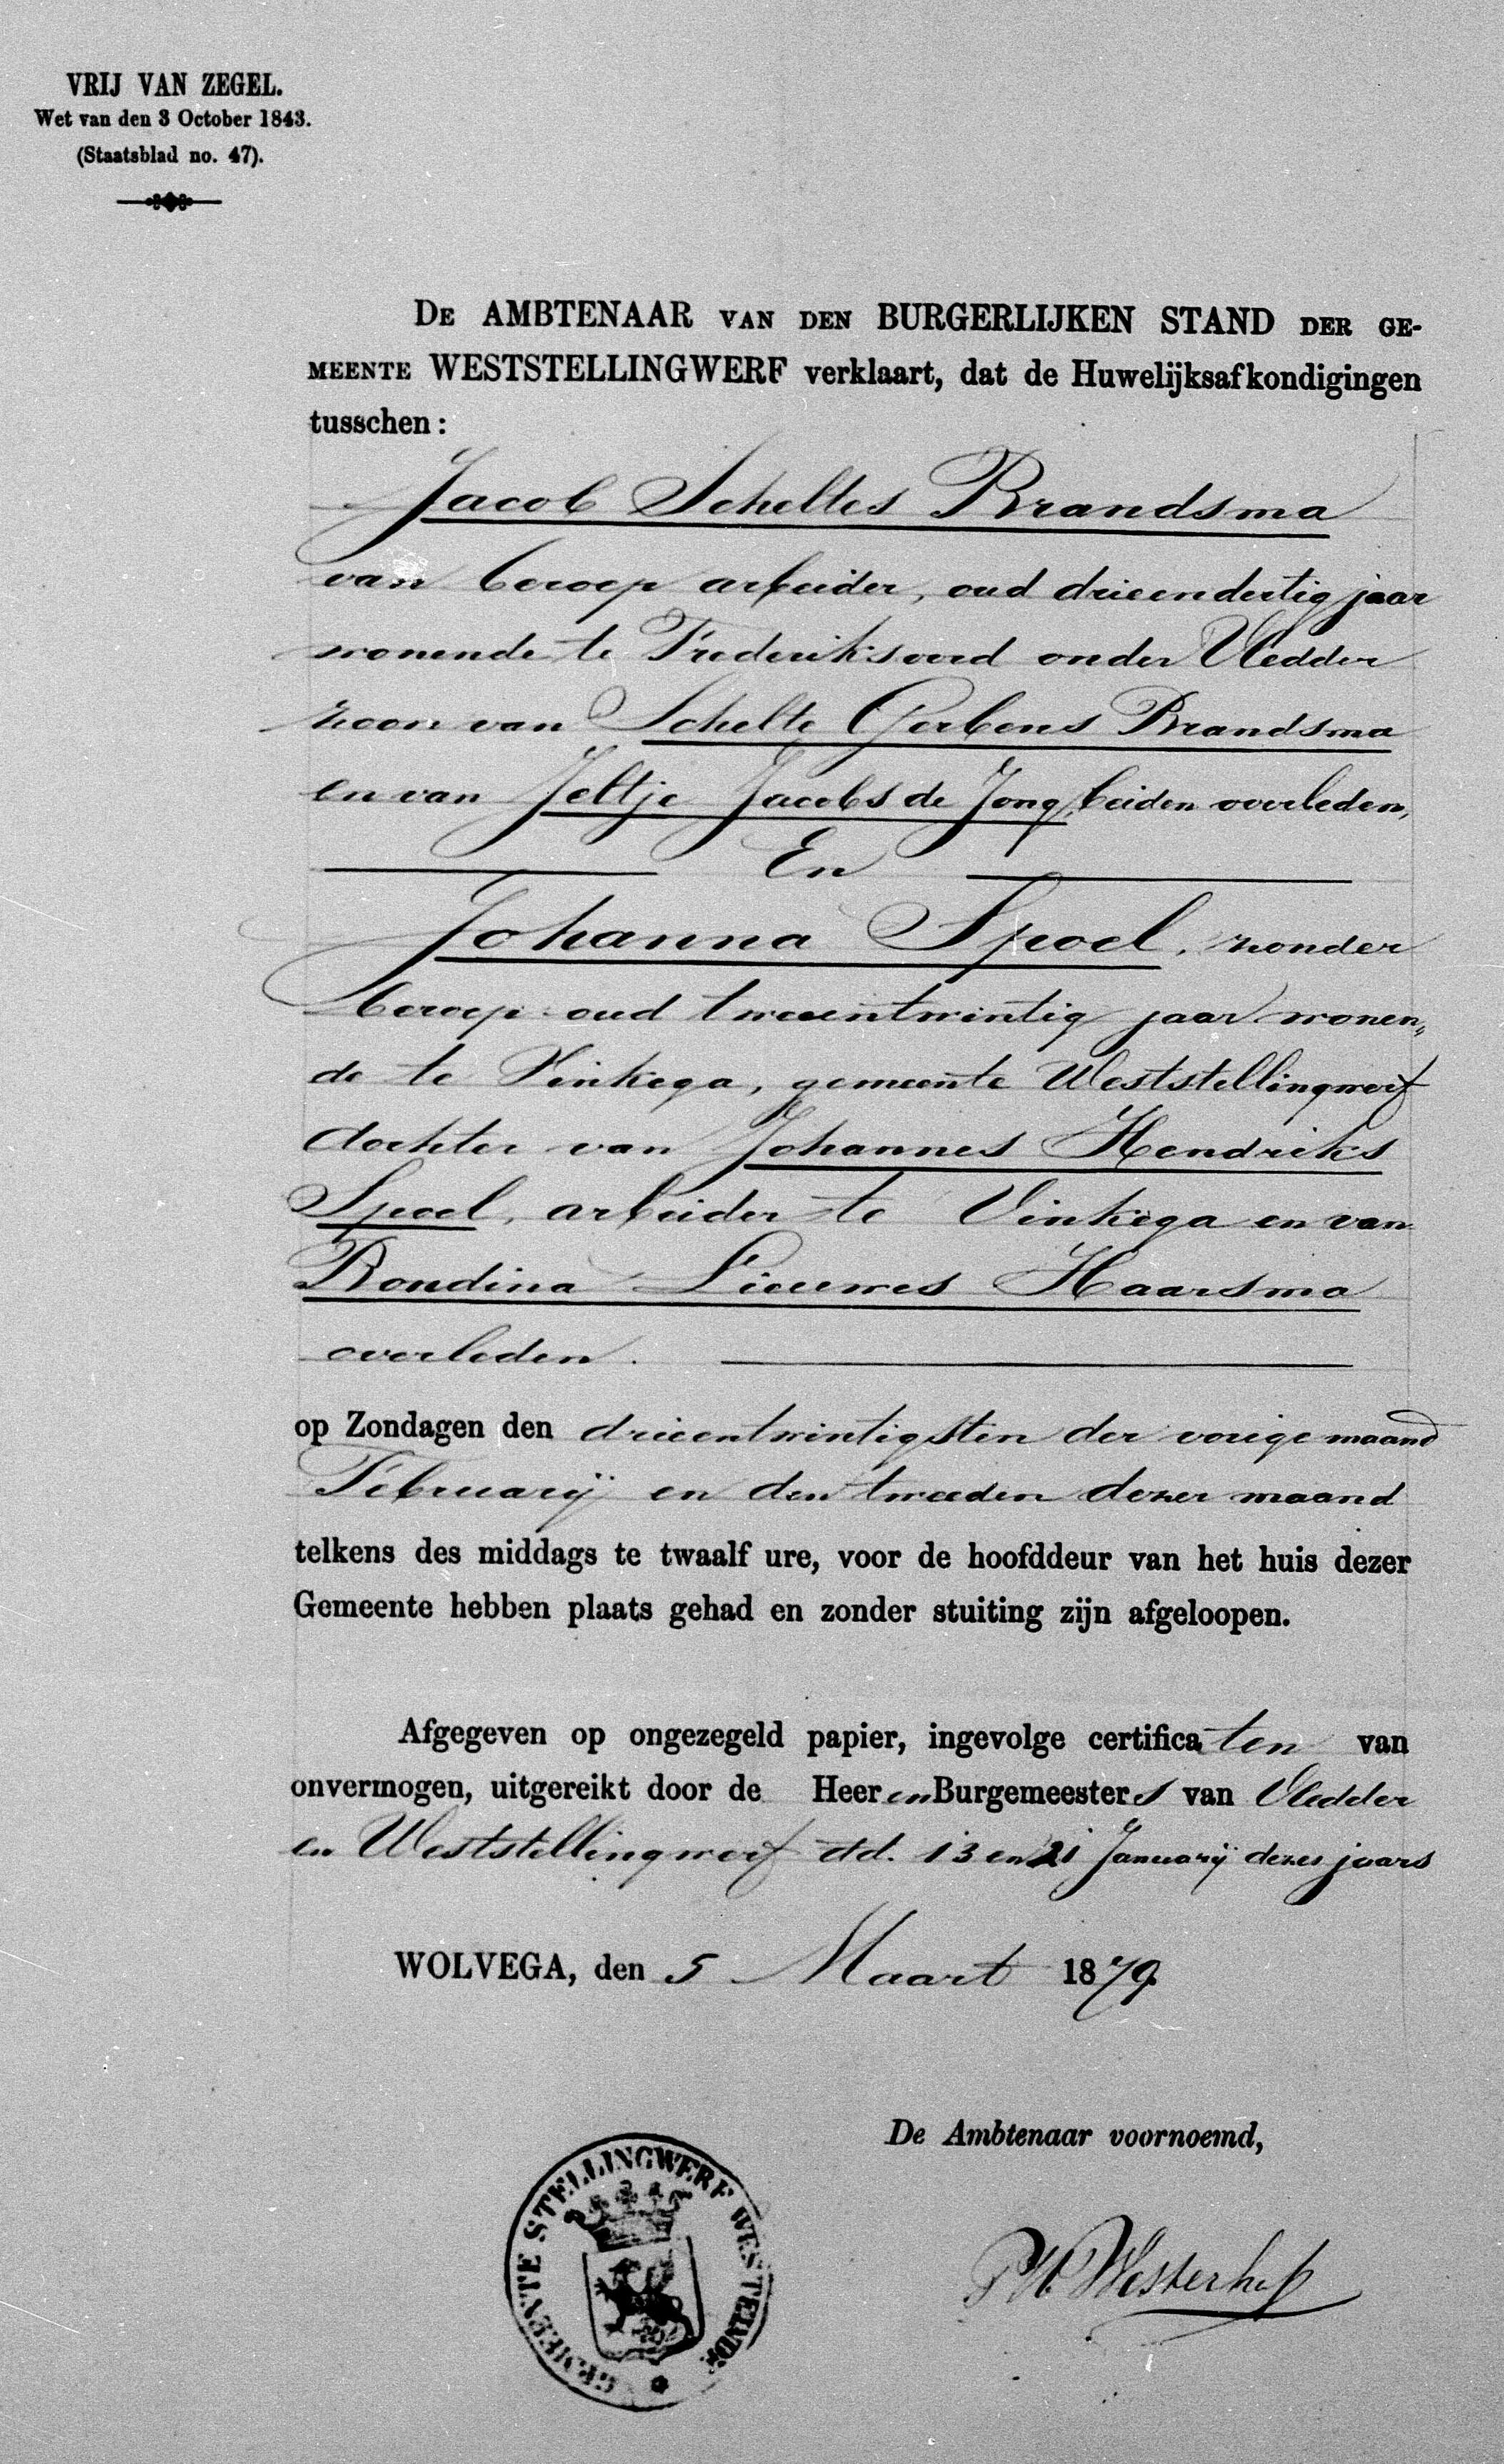 VRIJ VAN ZEGEL.
Wet van den 3 October 1843.
(Staatsblad no. 47).
DE AMBTENAAR VAN DEN BURGERLIJKEN STAND DER GE-
MEENTE WESTSTELLINGWERF verklaart, dat de Huwelijksafkondigingen
tusschen:
Jacob Scheltes Brandsma
van beroep arbeider, oud drieendertig jaar
wonende te Frederiksoord onder Vledder
zoon van Schelte Gerbens Brandsma
en van Jeltje Jacobs de Jong, beiden overleden,
En
Johanna Spoel, zonder
beroep oud tweeentwintig jaar wonen„
de te Vinkega, gemeente Weststellingwerf
dochter van Johannes Hendriks
Spoel, arbeider te Vinkega en van
Rondina Lieuwes Haarsma
overleden.
op Zondagen den drieentwintigsten der vorige maand
Februarij en den tweeden dezer maand
telkens des middags te twaalf ure, voor de hoofddeur van het huis dezer
Gemeente hebben plaats gehad en zonder stuiting zijn afgeloopen.
Afgegeven op ongezegeld papier, ingevolge certificaten van
onvermogen, uitgereikt door de Heeren Burgemeesters van Vledder
en Weststellingwerf dd. 13 en 21 Januarij dezes jaars
WOLVEGA, den 5 Maart 1879
De Ambtenaar voornoemd,
GEMEENTE STELLINGWERF WESTEINDE
PW Westerhof